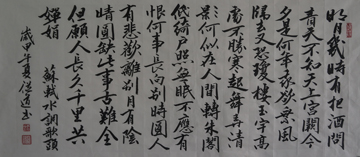 明月幾時有把酒問
青天不知天上宮闕今
夕是何年我欲乘風
歸去又恐瓊樓玉宇高
處不勝寒起舞弄清
影何似在人間轉朱閣
低綺戶照無眠不應有
恨何事長向別時圓人
有悲歡離合月有陰
晴圓缺此事古難全
但願人長久千里共
嬋娟 蘇軾水調歌頭
歲甲午夏